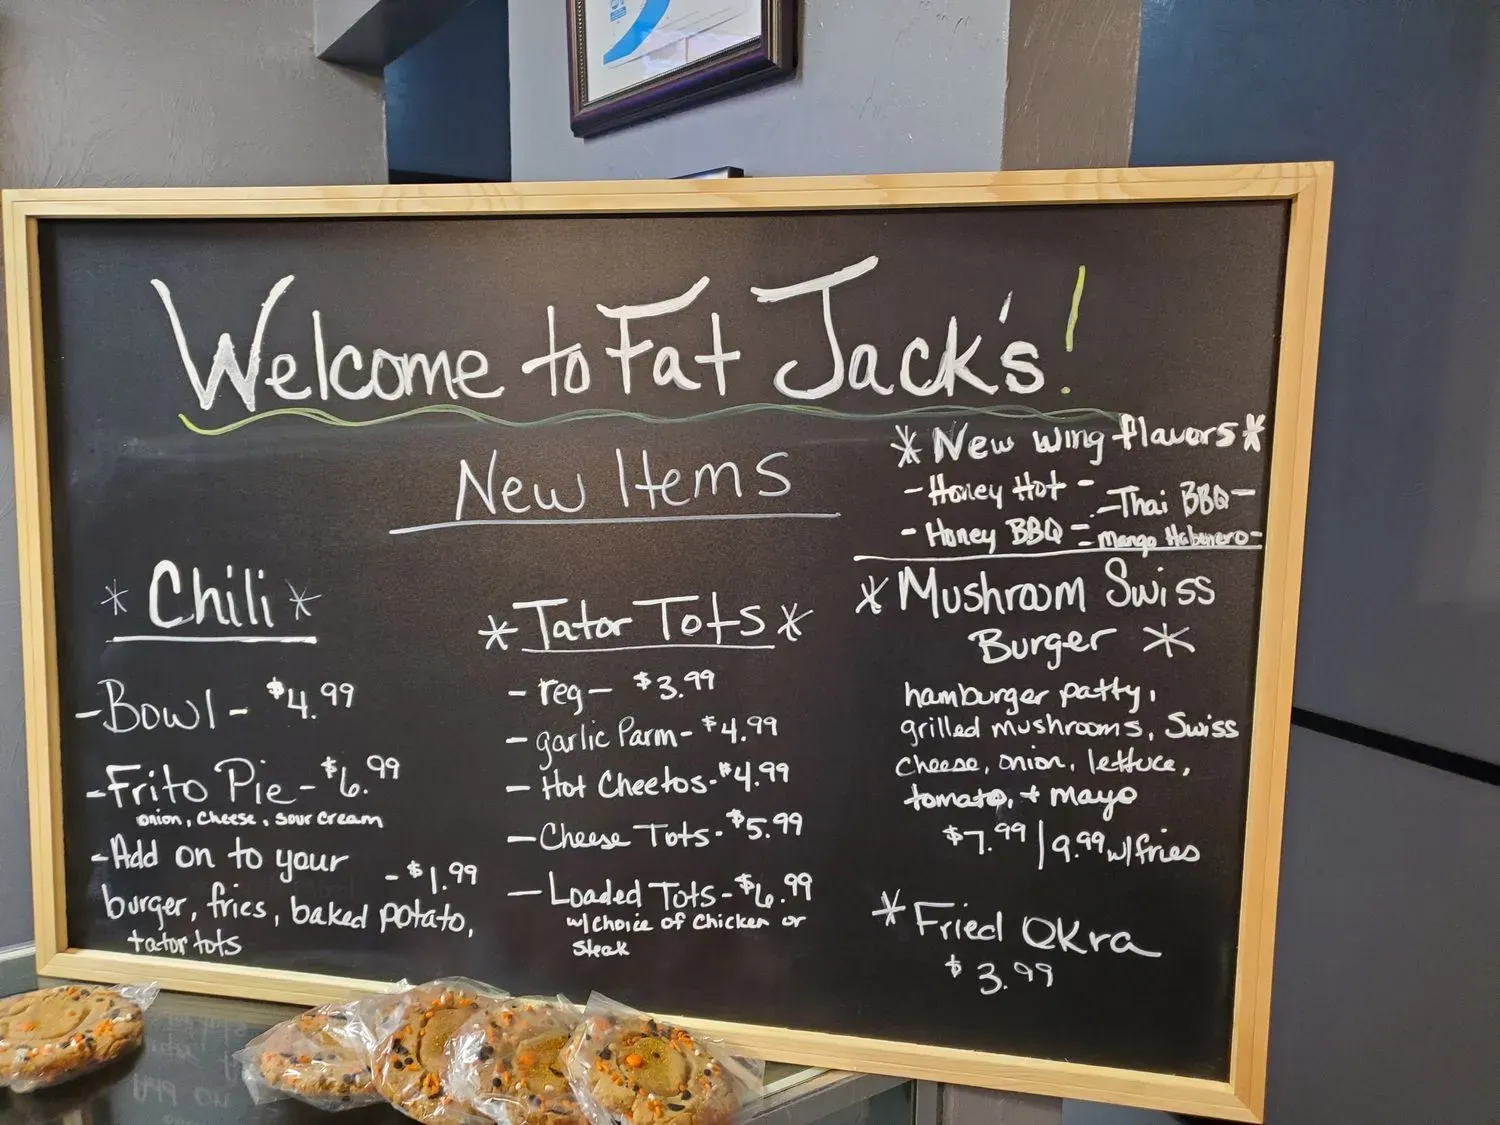 Welcome to Fat Jack's!
New Items
* Chili *
- Bowl - $4.99
- Frito Pie - $6.99
onion, cheese, sour cream
- Add on to your
burger, fries, baked potato, - $1.99
tator tots
* Tator Tots *
- reg - $3.99
- garlic Parm - $4.99
- Hot Cheetos - $4.99
- Cheese Tots - $5.99
- Loaded Tots - $6.99
w/ Choice of Chicken or
Steak
* New wing flavors *
- Honey Hot - - Thai BBQ -
- Honey BBQ - - Mango Habenero -
* Mushroom Swiss
Burger *
hamburger patty,
grilled mushrooms, Swiss
cheese, onion, lettuce,
tomato, + mayo
$7.99 | 9.99 w/ fries
* Fried Okra
$3.99